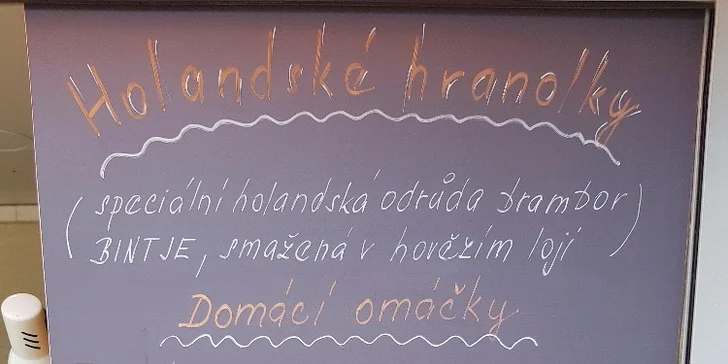 Holandské hranolky
(speciální holandská odrůda brambor
BINTJE, smažená v hovězím loji)
Domácí omáčky